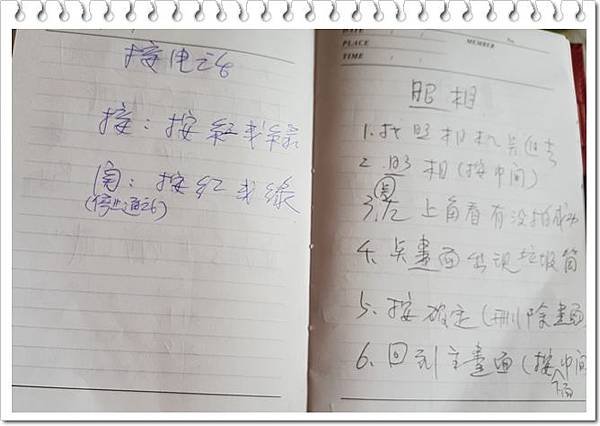 接电话
接：按红或绿
関：按红或線
(停止通话)
DATE / /
PLACE MEMBER
TIME / /
照相
1.找照相机点进去
2.照相(按中间)
圆
3.左上角看有没拍成功
4、点畫面出现垃圾筒
5.按确定(删除畫面
6.回到主畫面(按中间
下面